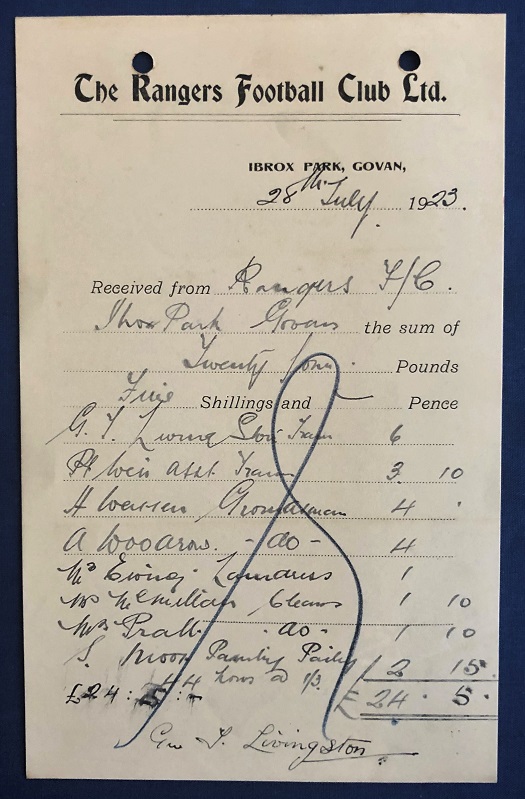 The Rangers Football Club Ltd.
IBROX PARK, GOVAN,
28th July 1923.
Received from Rangers F/C.
Ibrox Park Govan the sum of
Twenty four Pounds
Five Shillings and — Pence
G. T. Livingston Train 6
Asst Train 3. 10
Groundsman 4
A Woodrow. - do - 4
Mrs Ewing Laundress 1
Mrs McMillan Cleans 1 10
Mrs Pratt - do - 1 10
S. Moor Painting Pailing 2 15
44 hours @ 1/3.
£24: 5: - £24 . 5.
Geo T. Livingston